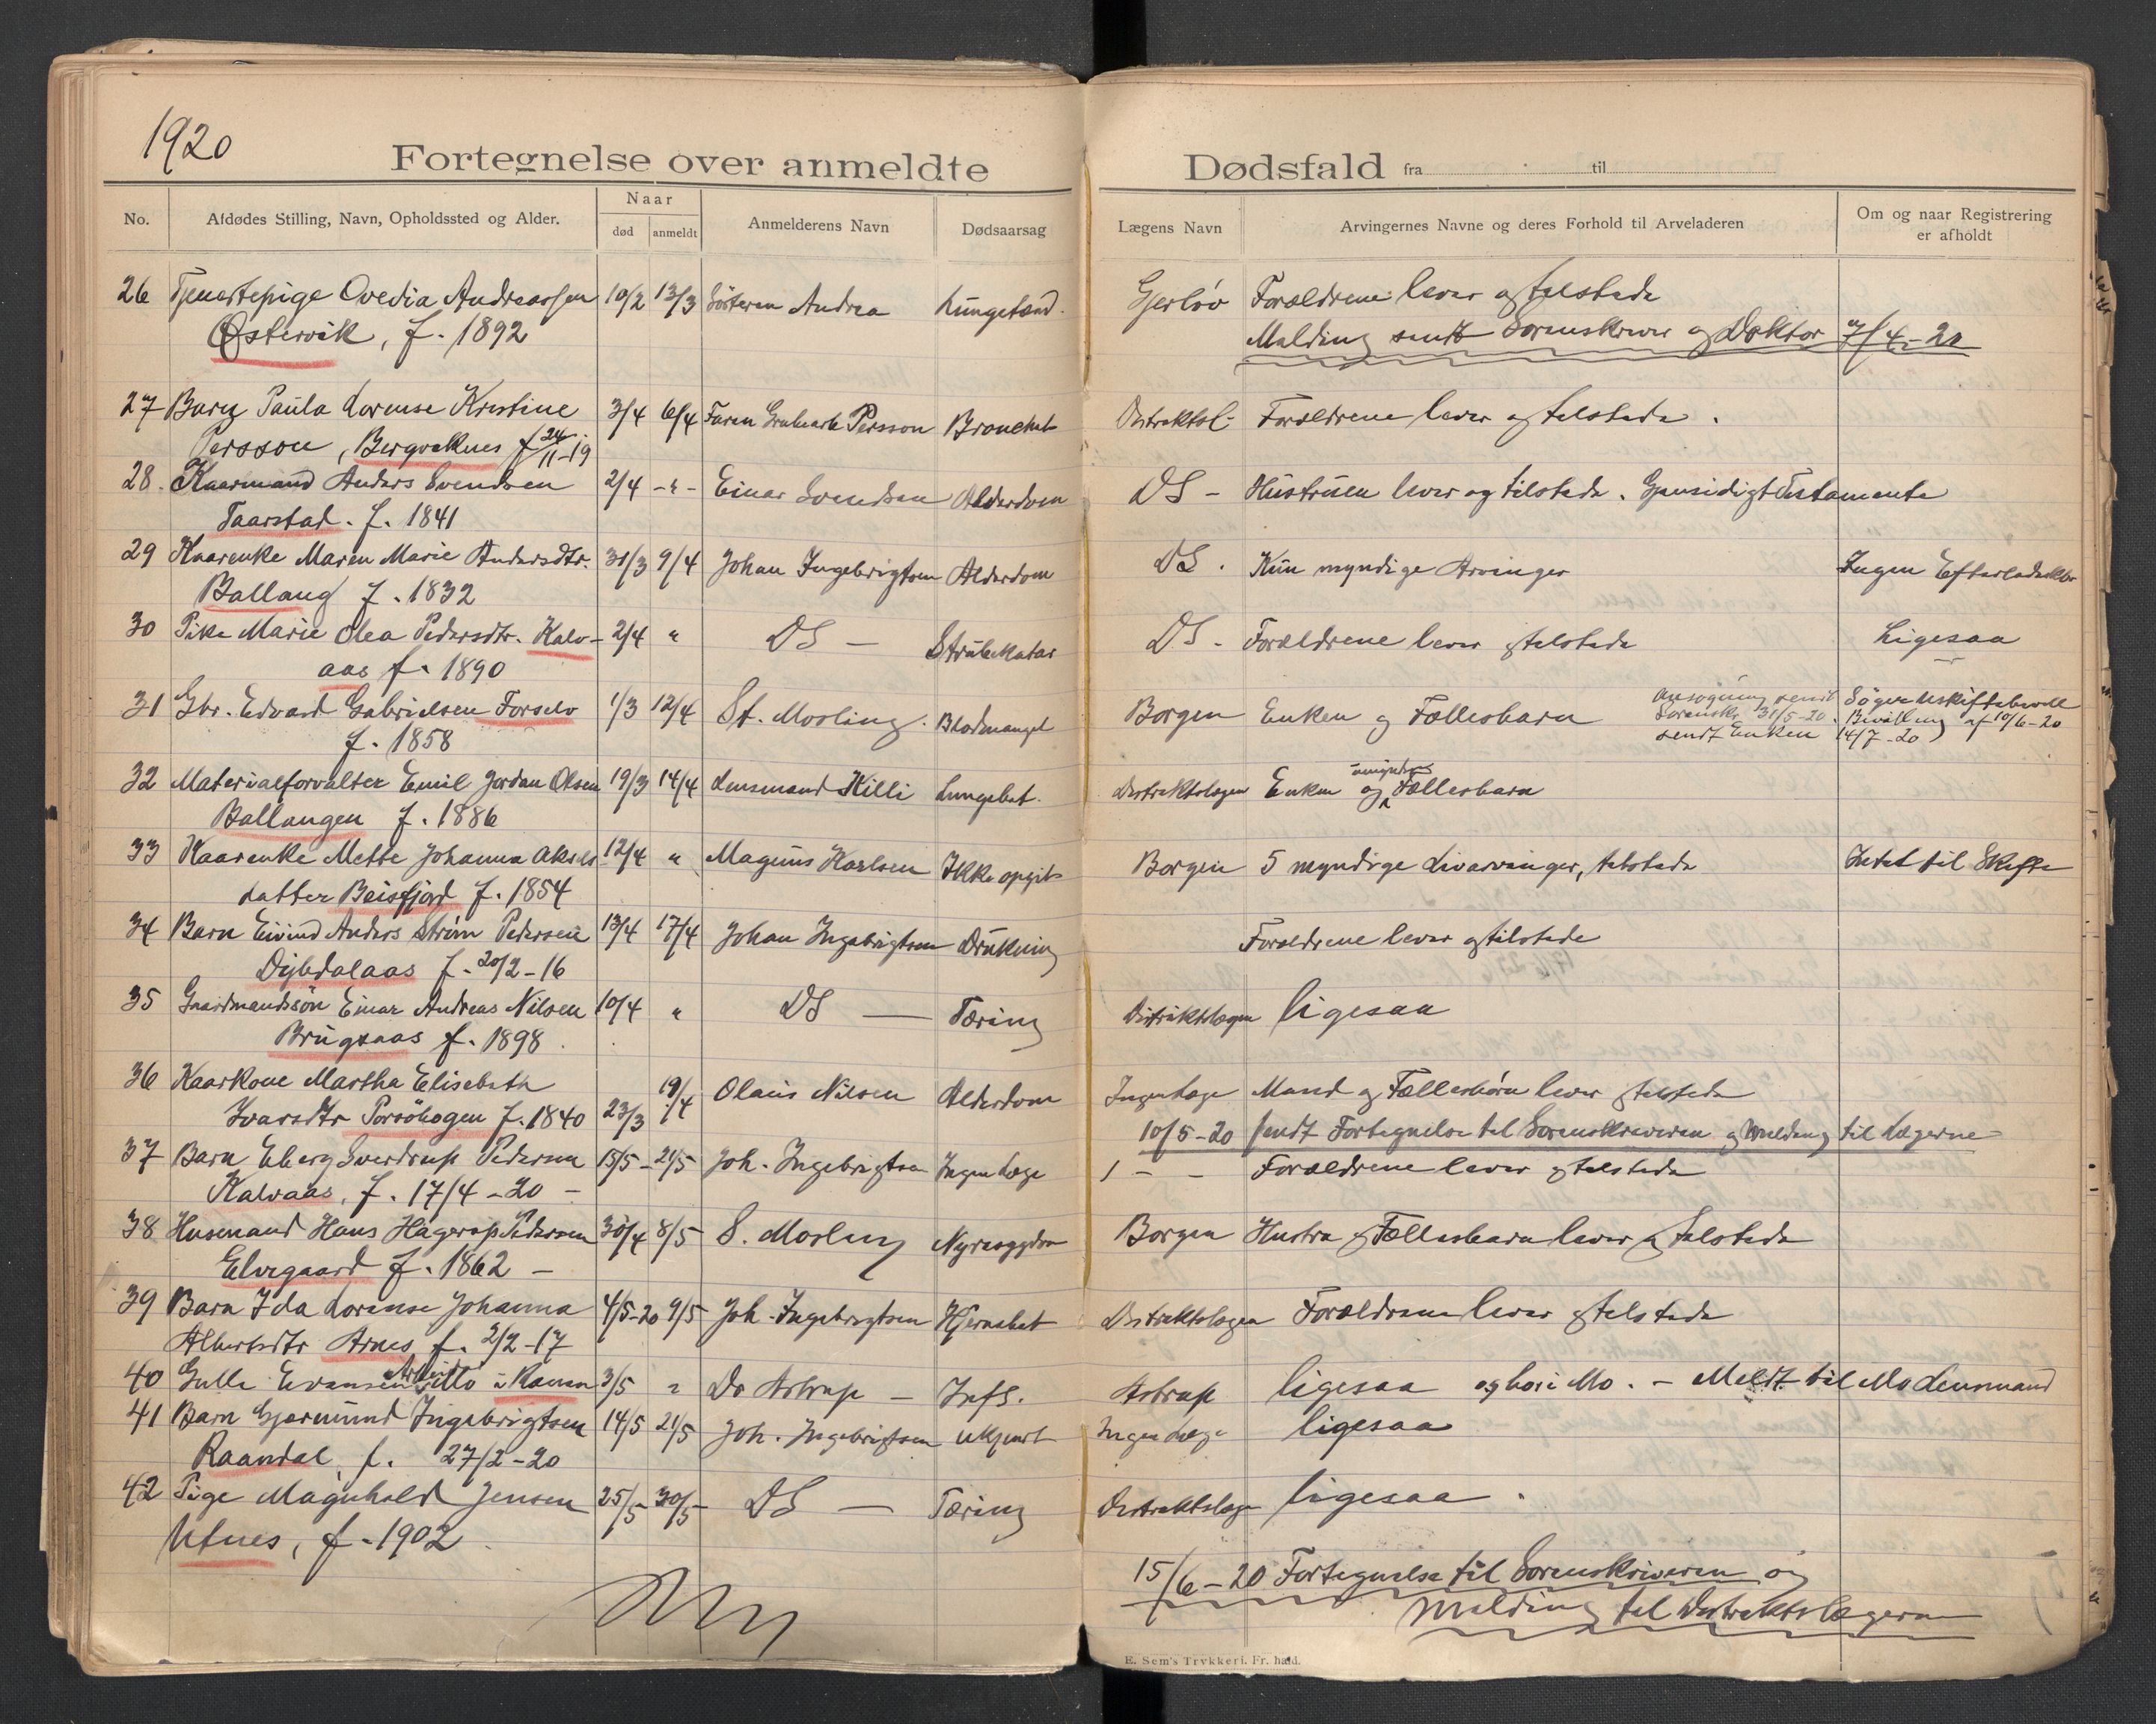 1920
Fortegnelse over anmeldte Dødsfald fra til
No. Afdødes Stilling, Navn, Opholdssted og Alder. Naar død anmeldt Anmelderens Navn Dødsaarsag Lægens Navn Arvingernes Navne og deres Forhold til Arveladeren Om og naar Registrering er afholdt
26 Tjenestepige Ovedia Andreassen 10/2 13/3 Søsteren Andrea Lungetænd. Gjerløv Forældrene lever og tilstede
Østervik, f. 1892 Melding sendt Sorenskriver og Doktor 7/4-20
27 Barn Paula Lorense Kristine 3/4 6/4 Faren Persson Bronchit Distriktsl. Forældrene lever og tilstede.
Persson, Bergviknes f 24/11-19
28. Kaarmand Anders Svendsen 2/4 -"- Einar Svendsen Alderdom DS - Hustruen lever og tilstede. Gjensidigt Testamente
Taarstad. f. 1841
29 Kaarenke Maren Marie Andersdtr. 31/3 9/4 Johan Ingebrigtsen Alderdom DS. Kun myndige Arvinger Ingen
Ballang f. 1832
30 Pike Marie Olea Pedersdtr. Kalv- 2/4 " DS — Strubekatar DS - Forældrene lever og tilstede Ligesaa
aas f. 1890
31 Gbr. Edvard Gabrielsen Forselv 1/3 12/4 St. Mosling. Blodmangel Borgen Enken og Fællesbarn Ansøgning sendt Søger Uskiftebevill
f. 1858 Sorenskr. 31/5-20. Bevilling af 10/6-20
sendt Enken 14/7-20)
32 Materialforvalter Emil Jordan Olsen 19/3 14/4 Lensmand Killi Lungebet. Distriktslægen Enken og umyndige Fællesbarn
Ballangen f. 1886
33 Kaarenke Mette Johanna Aksels 12/4 " Magnus Karlsen Ikke opgit Borgen 5 myndige Livarvinger, tilstede Intet til Skifte
datter Beisfjord f. 1854
34 Barn Eivind Anders Strøm Pedersen 13/4 17/4 Johan Ingebrigtsen Drukning Forældrene lever og tilstede
Dybdalaas f. 20/2-16
35 Gaardmandssøn Einar Andreas Nilsen 10/4 " DS — Tæring Distriktslægen ligesaa
Brugsaas f. 1898.
36 Kaarkone Martha Elisabeth 19/4 Olaus Nilsen Alderdom Ingen Læge Mand og Fællesbørn lever og tilstede
Ivarsdtr Porsöhogen f. 1840 23/3 10/5-20 sendt Fortegnelse til Sorenskriveren og Melding til Lægerne
37 Barn Sverdrup Pedersen 15/5- 21/5 Joh. Ingebrigtsen Ingen Læge - - Forældrene lever og tilstede
Kalvaas, f. 17/4-20 -
38 Husmand Hans Hagerup Pedersen 30/4 8/5 S. Mosling Nyresygdom Borgen Hustru og Fællesbarn lever og tilstede
Elvegaard f. 1862 -
39 Barn Ida Lorense Johanna 4/5-20 9/5 Joh. Ingebrigtsen Hjernebet Distriktslægen Forældrene lever og tilstede
Albertsdtr Arnes f. 2/2-17
40 Gulle Evensen 3/5 " Dr Astrup — Infl. Astrup ligesaa og bor i Mo. - Meldt til Mo Lensmand
41 Barn Gjermund Ingebrigtsen 14/5 21/5 Joh. Ingebrigtsen ukjent Ingen Læge ligesaa
Raandal, f. 27/2-20
42 Pige Maguhild Jensen 25/5- 30/5- DS — Tæring Distriktslæge ligesaa.
Utnes, f. 1902.
15/6-20 Fortegnelse til Sorenskriveren og
Melding til Distriktslægerne
E. Sem's Trykkeri. Fr. hald.